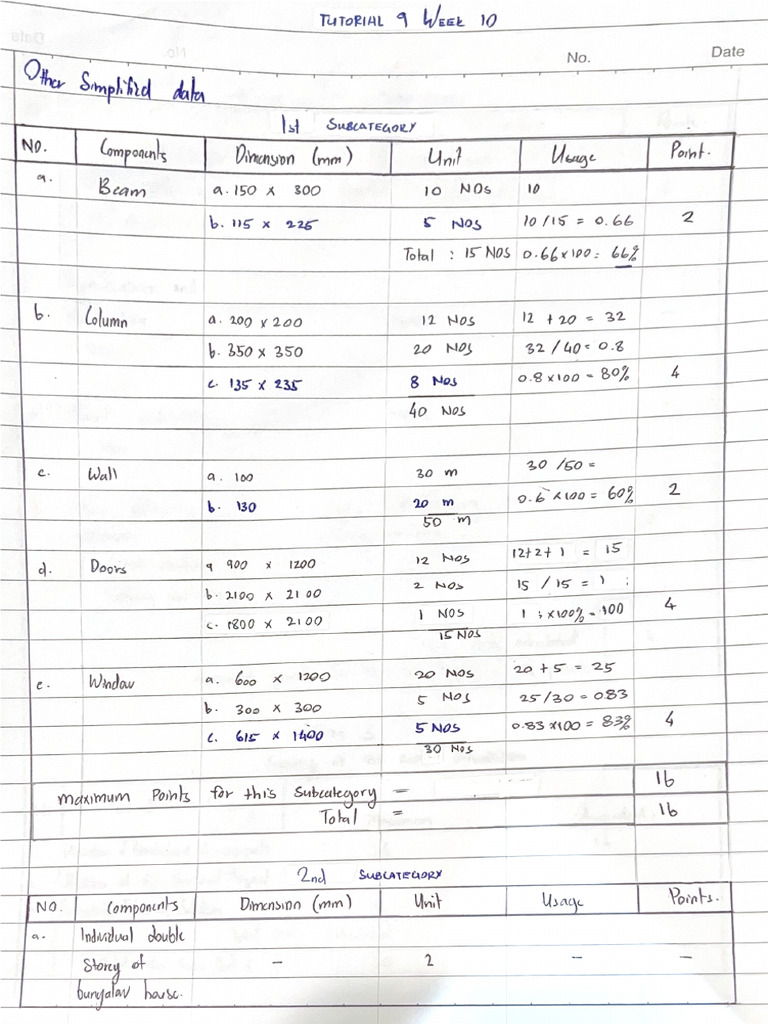 TUTORIAL 9 WEEK 10
No. Date
Other Simplified data
1st SUBCATEGORY
NO. Components Dimension (mm) Unit Usage Point.
a. Beam a. 150 x 300 10 NOS 10
b. 115 x 225 5 NOS 10/15 = 0.66 2
Total : 15 NOS 0.66x100 = 66%
b. Column a. 200 x 200 12 NOS 12 + 20 = 32
b. 350 x 350 20 NOS 32/40 = 0.8
c. 135 x 235 8 NOS 0.8x100 = 80% 4
40 NOS
c. Wall a. 100 30 m 30/50 =
b. 130 20 m 0.6 x100 = 60% 2
50 m
d. Doors a 900 x 1200 12 NOS 12+2+1 = 15
b. 2100 x 2100 2 NOS 15/15 = 1 ;
c. 1800 x 2100 1 NOS 1 ; x100% = 100 4
15 NOS
e. Window a. 600 x 1200 20 NOS 20+5 = 25
b. 300 x 300 5 NOS 25/30 = 0.83
c. 615 x 1400 5 NOS 0.83 x100 = 83% 4
30 NOS
maximum Points for this Subcategory = 16
Total = 16
2nd SUBCATEGORY
NO. Components Dimension (mm) Unit Usage Points.
a. Individual double
Storey of – 2 – –
bungalav house.